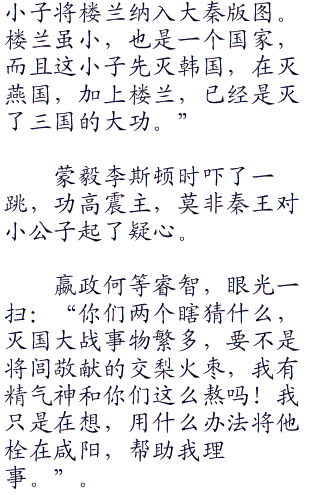 小子将楼兰纳入大秦版图。
楼兰虽小，也是一个国家，
而且这小子先灭韩国，在灭
燕国，加上楼兰，已经是灭
了三国的大功。”
蒙毅李斯顿时吓了一
跳，功高震主，莫非秦王对
小公子起了疑心。
嬴政何等睿智，眼光一
扫：“你们两个瞎猜什么，
灭国大战事物繁多，要不是
将闾敬献的交梨火枣，我有
精气神和你们这么熬吗！我
只是在想，用什么办法将他
栓在咸阳，帮助我理
事。”。